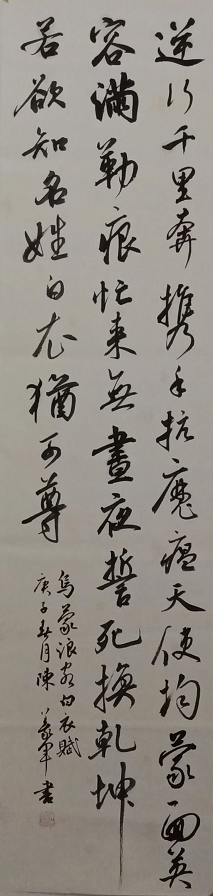 逆行千里奔携手抗魔瘟天使均蒙面英
容满勒痕忙来無晝夜誓死換乾坤
若欲知名姓白衣猶可尊
烏蒙浪客白衣賦
庚子春月陳義军書